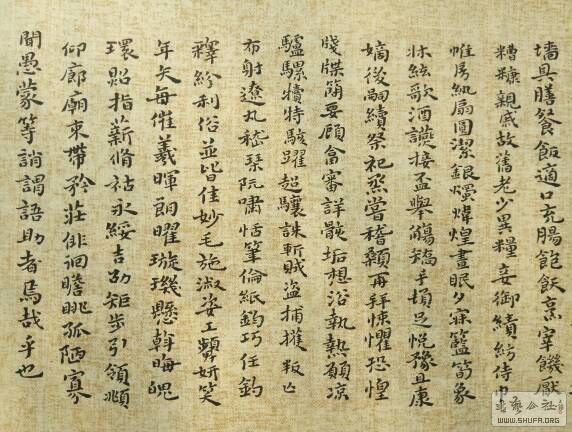 墙具膳餐飯適口充腸飽飫烹宰饑厭
糟糠親戚故舊老少異糧妾御績紡侍巾
帷房紈扇圓潔銀燭煒煌晝眠夕寐籃筍象
牀絃歌酒讌接盃舉觴矯手頓足悅豫且康
嫡後嗣續祭祀蒸嘗稽顙再拜悚懼恐惶
牋牒簡要顧答審詳骸垢想浴執熱願涼
驢騾犢特駭躍超驤誅斬賊盗捕獲叛亡
布射遼丸嵇琴阮嘯恬筆倫紙鈞巧任釣
釋紛利俗並皆佳妙毛施淑姿工顰妍笑
年矢每催羲暉朗曜璇璣懸斡晦魄
環照指薪脩祜永綏吉劭矩步引領俯
仰廊廟束帶矜莊徘徊瞻眺孤陋寡
聞愚蒙等誚謂語助者焉哉乎也
WWW.SHUFA.ORG